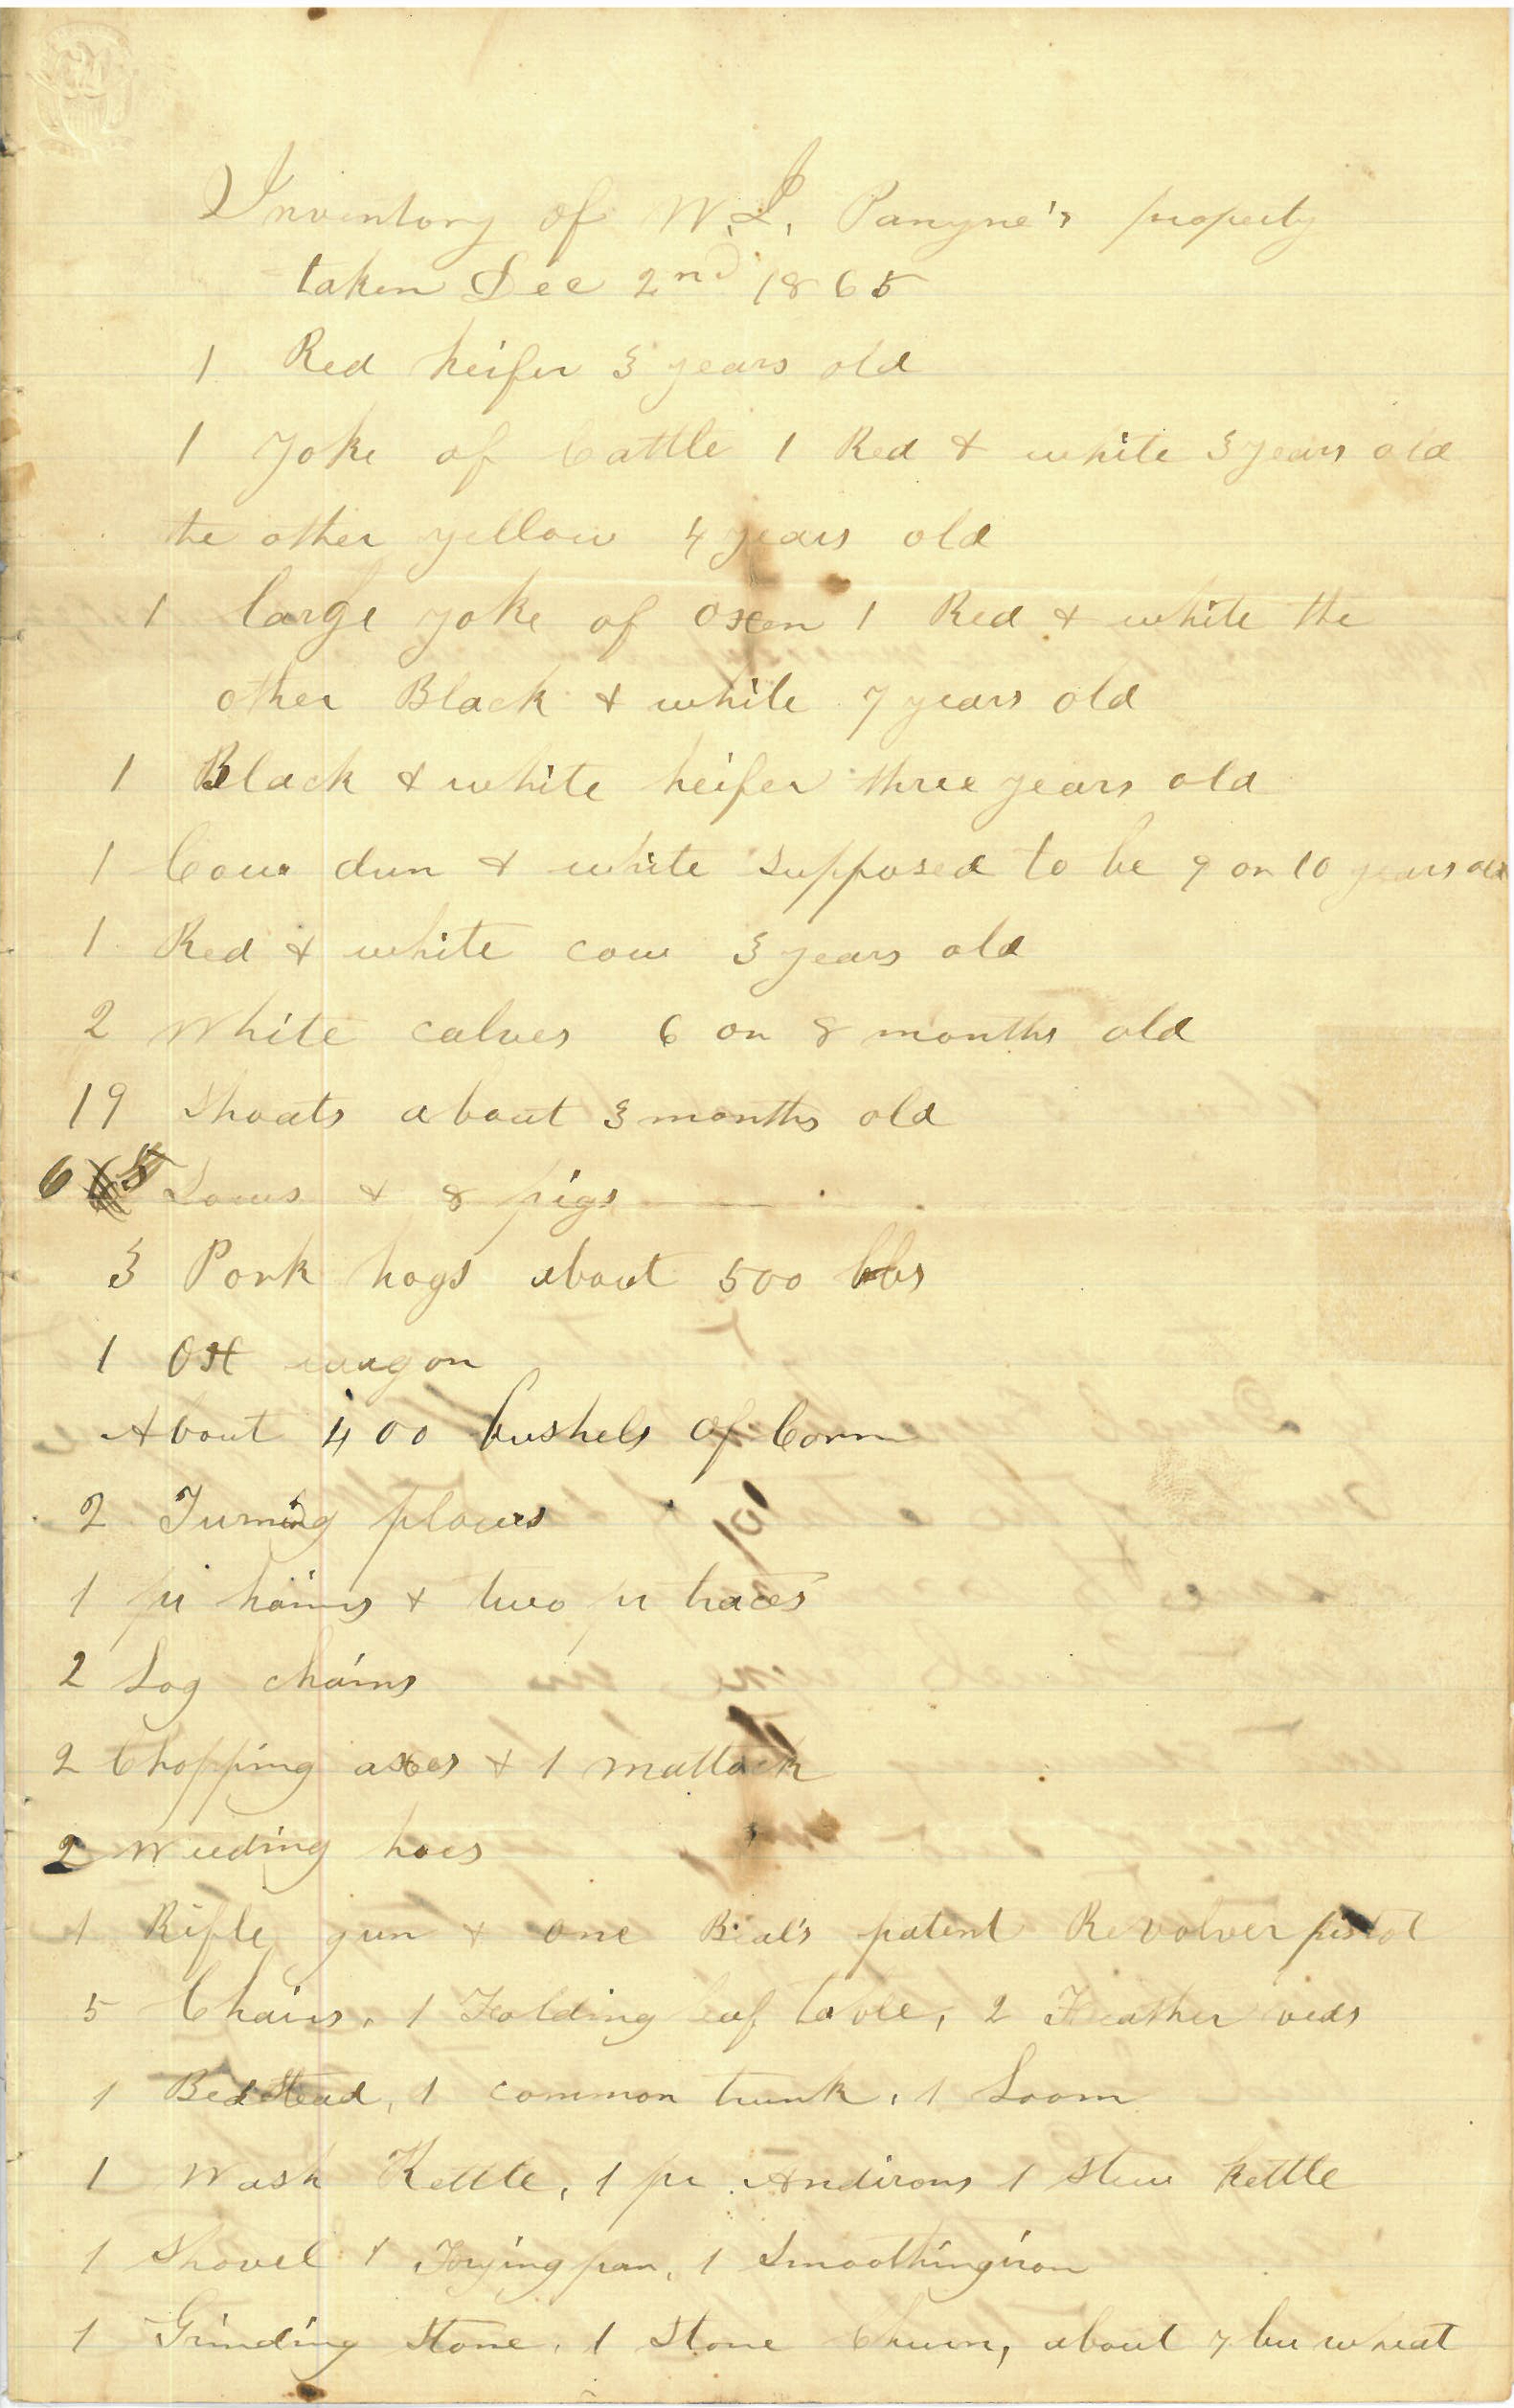 Inventory of W. L. Pangne's property
taken Dec 2nd 1865
1 Red heifer 3 years old
1 Yoke of Cattle 1 Red & white 3 years old
the other yellow 4 years old
1 large yoke of oxen 1 Red & white the
other Black & white 7 years old
1 Black & white heifer three years old
1 Cow dun & white supposed to be 9 or 10 years old
1 Red & white cow 3 years old
2 White calves 6 or 8 months old
19 Shoats about 3 months old
6 Sows & 8 pigs
3 Pork hogs about 500 lbs
1 Ox wagon
About 400 bushels of Corn
2 Turning plows
1 pr hains & two pr traces
2 Log chains
2 Chopping axes & 1 mattock
2 Weeding hoes
1 Rifle gun & one Beal's patent Revolver pistol
5 Chairs, 1 Folding leaf table, 2 Feather beds
1 Bed Stead, 1 common trunk, 1 Loom
1 Wash Kettle, 1 pr Andirons 1 stew kettle
1 Shovel 1 Frying pan, 1 Smoothing iron
1 Grinding Stone, 1 Stone Churn, about 7 bu wheat